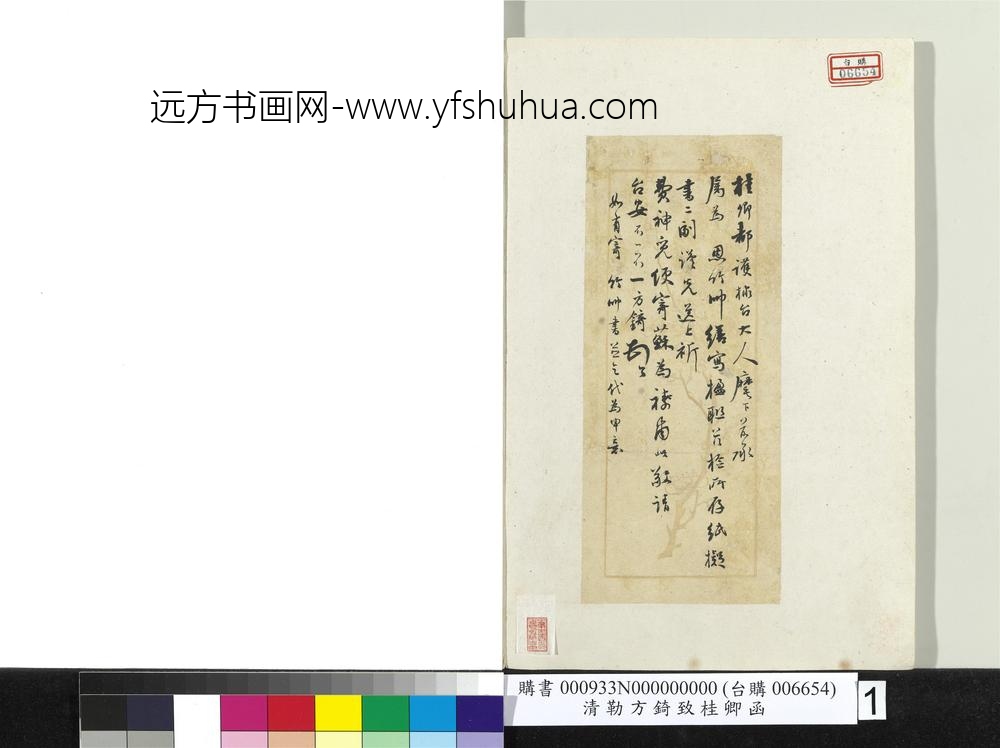 远方书画网-www.yfshuhua.com
台購
06654
桂卿都護楙台大人麾下前承
屬為 恩竹帅繕寫楹联茲檢所存紙擬
書二副謹先送上祈
費神覓便寄蘇為禱肅此敬請
台安不一不一方錡頓首
如有寄 竹帅書並乞代為申意
購書 000933N000000000 (台購 006654)
清勒方錡致桂卿函
1